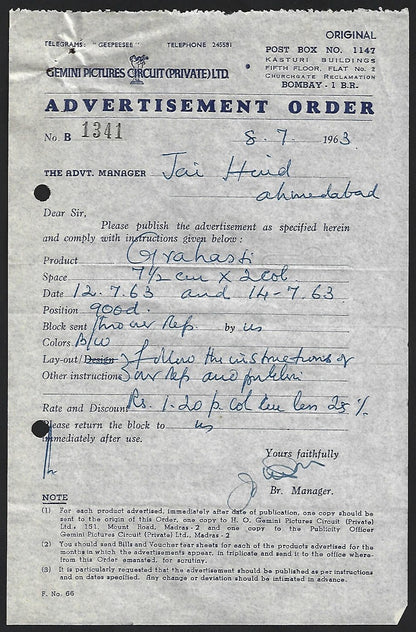 ORIGINAL
TELEGRAMS: "GEEPEESEE" TELEPHONE 245581
POST BOX NO. 1147
KASTURI BUILDINGS
FIFTH FLOOR, FLAT No. 2
CHURCHGATE RECLAMATION
BOMBAY-1 B.R.
GEMINI PICTURES CIRCUIT (PRIVATE) LTD.
ADVERTISEMENT ORDER
No. B 1341 8-7 1963
THE ADVT. MANAGER Jai Hind
Ahmedabad
Dear Sir,
Please publish the advertisement as specified herein
and comply with instructions given below :
Product Grahasti
Space 7½ cm X 2 col
Date 12.7.63 and 14-7.63
Position good.
Block sent thro our Rep. by us
Colors B/W
Lay-out/Design } Follow the instructions of
Other instructions } our Rep and publish
Rate and Discount Rs. 1-20 p. col cm less 25 %
Please return the block to us
immediately after use.
Yours faithfully
Br. Manager.
NOTE
(1) For each product advertised, immediately after date of publication, one copy should be
sent to the origin of this Order, one copy to H. O. Gemini Pictures Circuit (Private)
Ltd., 151, Mount Road, Madras-2 and one copy to the Publicity Officer
Gemini Pictures Circuit (Private) Ltd., Madras-2
(2) You should send Bills and Voucher tear sheets for each of the products advertised for the
months in which the advertisements appear, in triplicate and send it to the office where-
from this Order emanated, for scrutiny.
(3) It is particularly requested that the advertisement should be published as per instructions
and on dates specified. Any change or deviation should be intimated in advance.
F. No. 66